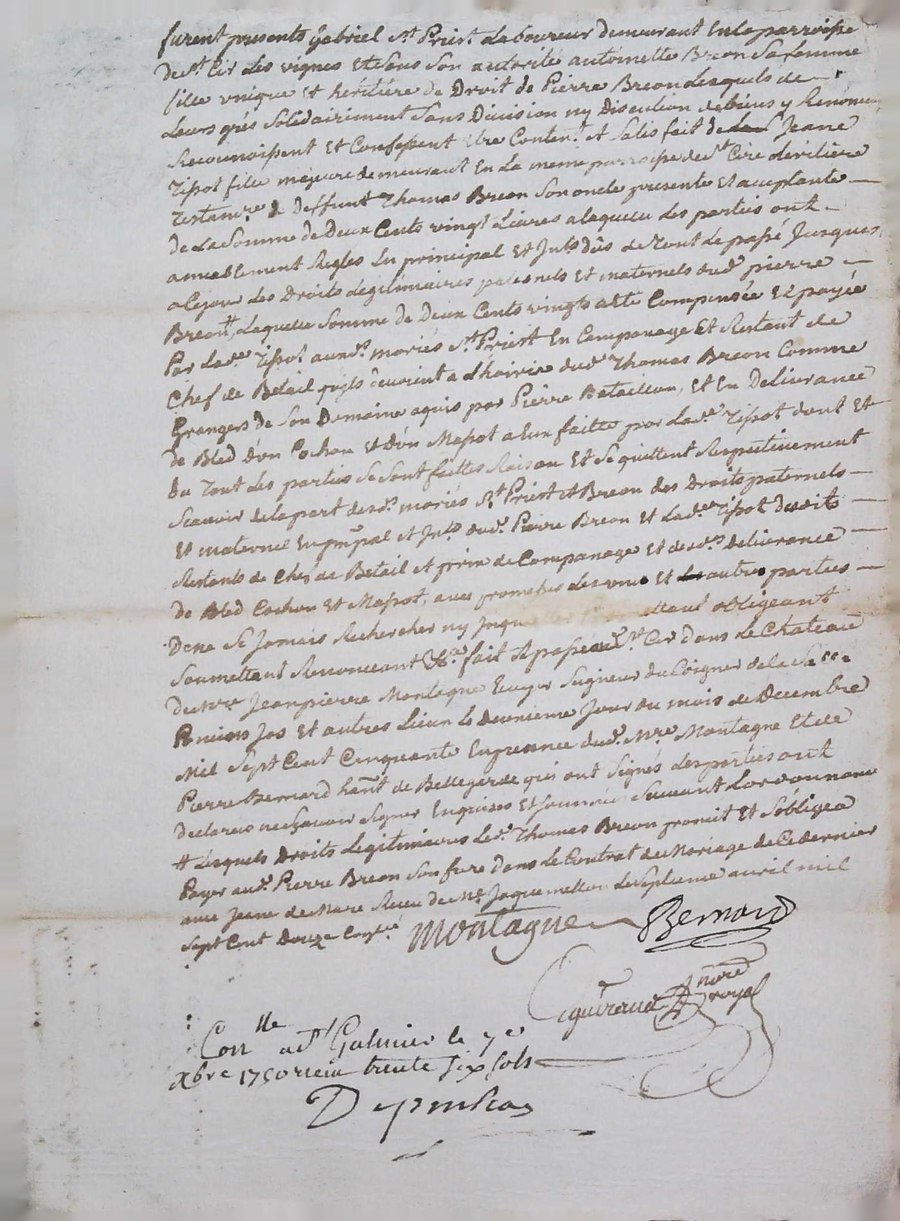 furent presents Gabriel St. Priest Laboureur demeurant En la parroisse
de St. Cir Les vignes Et sous son autorité antoinette Breon Sa femme
fille unique et heritière de Droit de Pierre Breon Lesquels de
Leurs grés Solidairiment Sans Division ny Discution de biens y Renonceu
Reconnoissent Et Confessent Etre Content. et Satisfait de Jeane
Tipot fille majeure demeurant En la meme parroisse de St. Cire heritiere
Testamre. de deffunt Thomas Breon Son oncle presente Et acceptante
de La Somme de Deux Cents vingt Livres a laquelle Les parties ont
amiablement Reglés En principal Et Jnts. dûs de Tout Le passé Jusques
a Ce jour Les Droits Legitimaires paternels Et maternels dud. pierre
Breon # Laquelle Somme de Deux Cents vingts a eté Compensée Et payée
Par Lade. Tipot auxd. mariés St. Priest En Companage Et Restant de
Chef de Betail qu'ils devoient a L'hoirie dud. Thomas Breon Comme
Grangers de Son Domaine aquis par Pierre Bataillon, Et En Delivrance
de Bled D'un Cochon Et D'un Massot a Eux faitte par Lade. Tipot dont Et
Du Tout Les parties Se Sont faittes Raison Et Se quittent Respectivement
Scavoir de la part desd. mariés St. Priest et Breon des Droits paternels
Et maternel En ppal et Jnts. dud. Pierre Breon Et Lade. Tipot desdits
Restants de Chef de Betail et prix de Companage Et desds. Delivrance
de Bled Cochon Et Massot, avec promesses Les uns Et Les autres parties
De ne Se Jamais Rechercher ny Jnquieter obligeant
Soumettant Renonceant &a. fait Et passé aud. St. Cir dans Le Chateau
De Mre. Jean pierre Montagne Ecuyer Seigneur du Poigner de la Salle
Poncins Jos Et autres Lieux Le Dernieme Jour du mois de Decembre
Mil Sept Cent Cinquante En presence dud. Mre. Montagne Et de
Pierre Bernard hant. de Bellegarde qui ont Signés Les parties ont
Declarés ne Scavoir Signer Enquises Et Sommées Suivant L'ordonnance
# Lesquels Droits Legitimaires Led. Thomas Breon promit Et S'obligea
Payer aud. Pierre Breon Son frere dans Le Contrat de Mariage de Ce dernier
avec Jeane de Mare Receu de Me. Jaquemetton Le Septieme avril mil
Sept Cent Douze
Montagne Bernard
nore. royal
Conlle a St. Galmier le 7e
xbre 1750 receu trente six sols